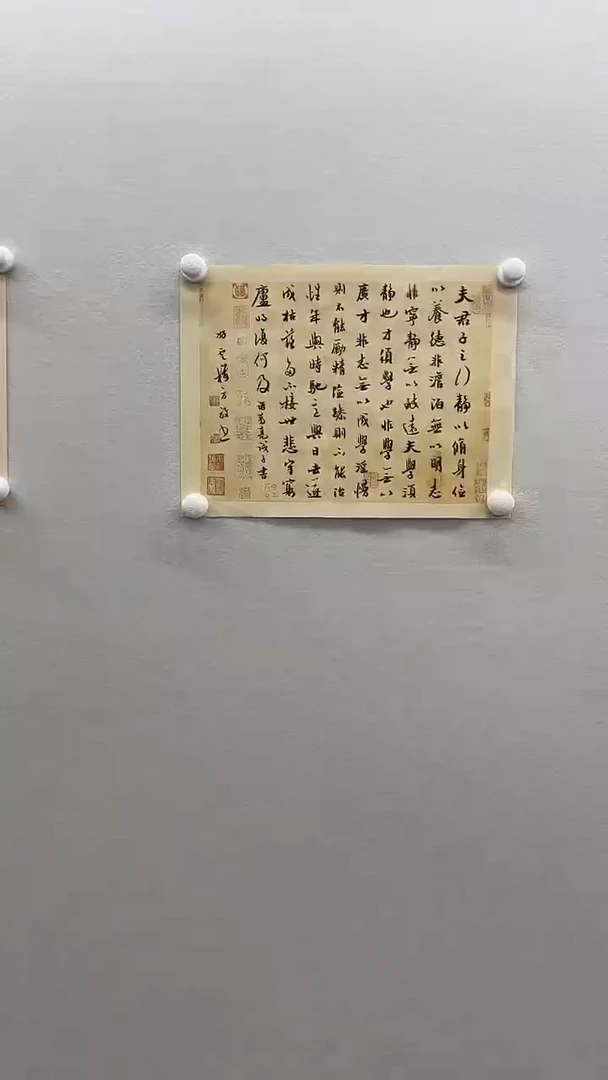 夫君子之行靜以脩身儉
以養德非澹泊無以明志
非寧靜無以致遠夫學須
靜也才須學也非學無以
廣才非志無以成學淫慢
則不能勵精險躁則不能治
性年與時馳意與日去遂
成枯落多不接世悲守窮
廬將復何及
諸葛亮誡子書